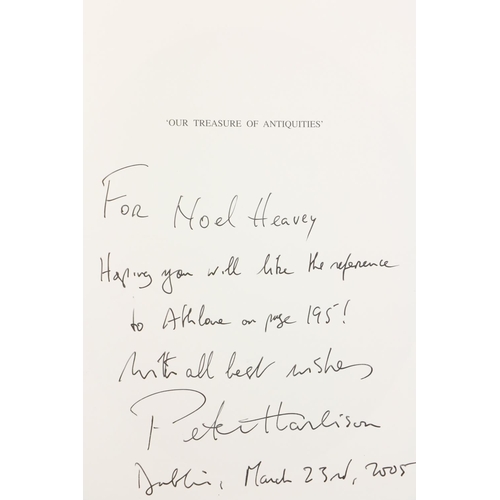 'OUR TREASURE OF ANTIQUITIES'
For Noel Heavey
Hoping you will like the reference
to Athlone on page 195!
With all best wishes
Peter Harbison
Dublin, March 23rd, 2005